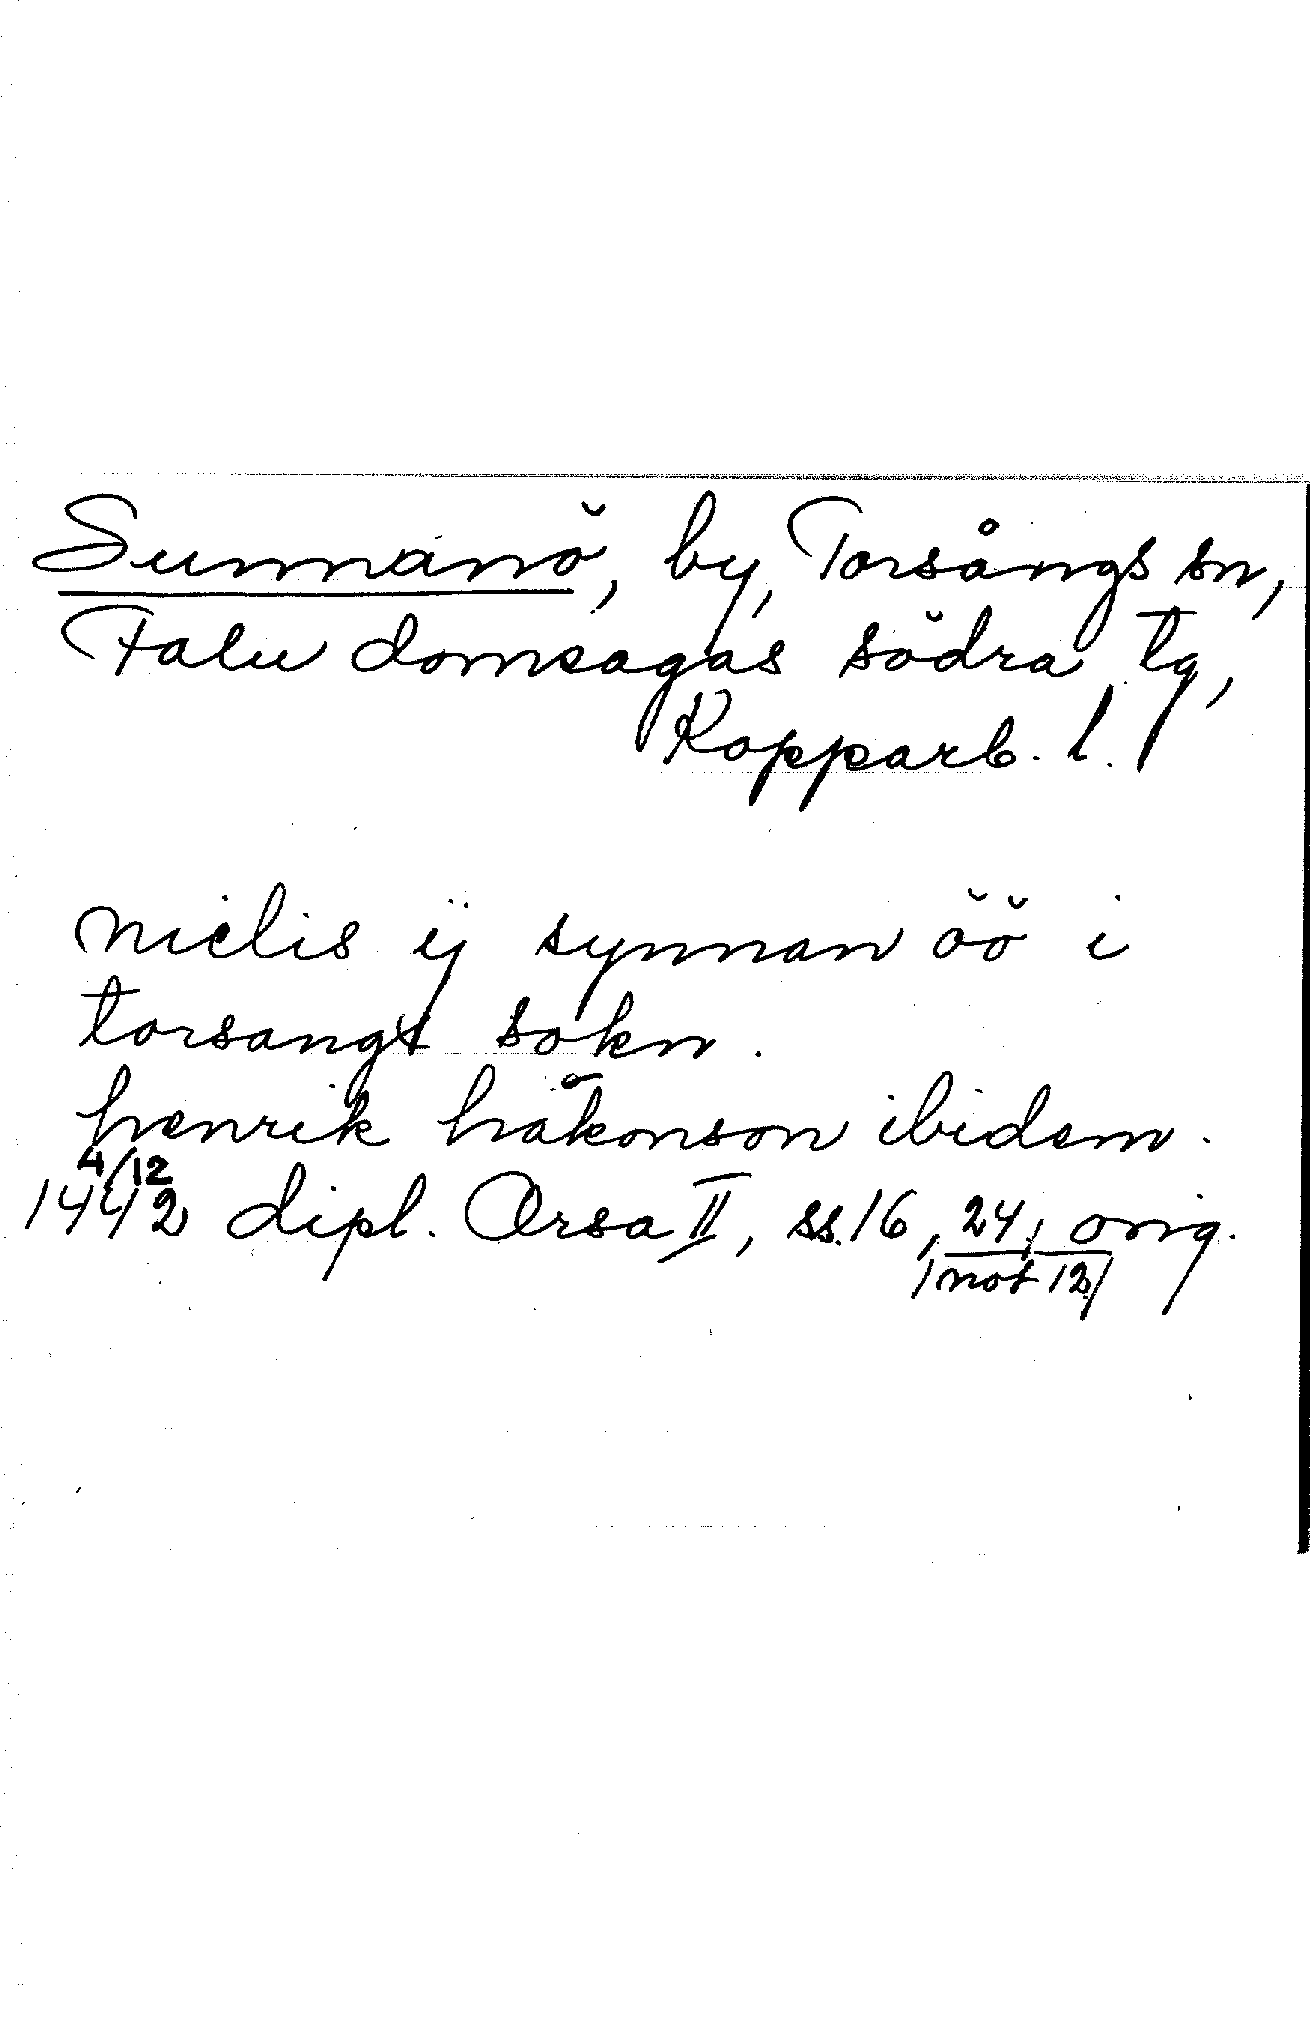 Sunnanö, by, Torsångs sn,
Falu domsagas södra tg,
Kopparb. l.
nielis ij synnan öö i
torsangx sokn.
henrik håkonson ibidem.
4/12
1442 dipl. Orsa II, ss. 16, 24, orig.
/not 12/